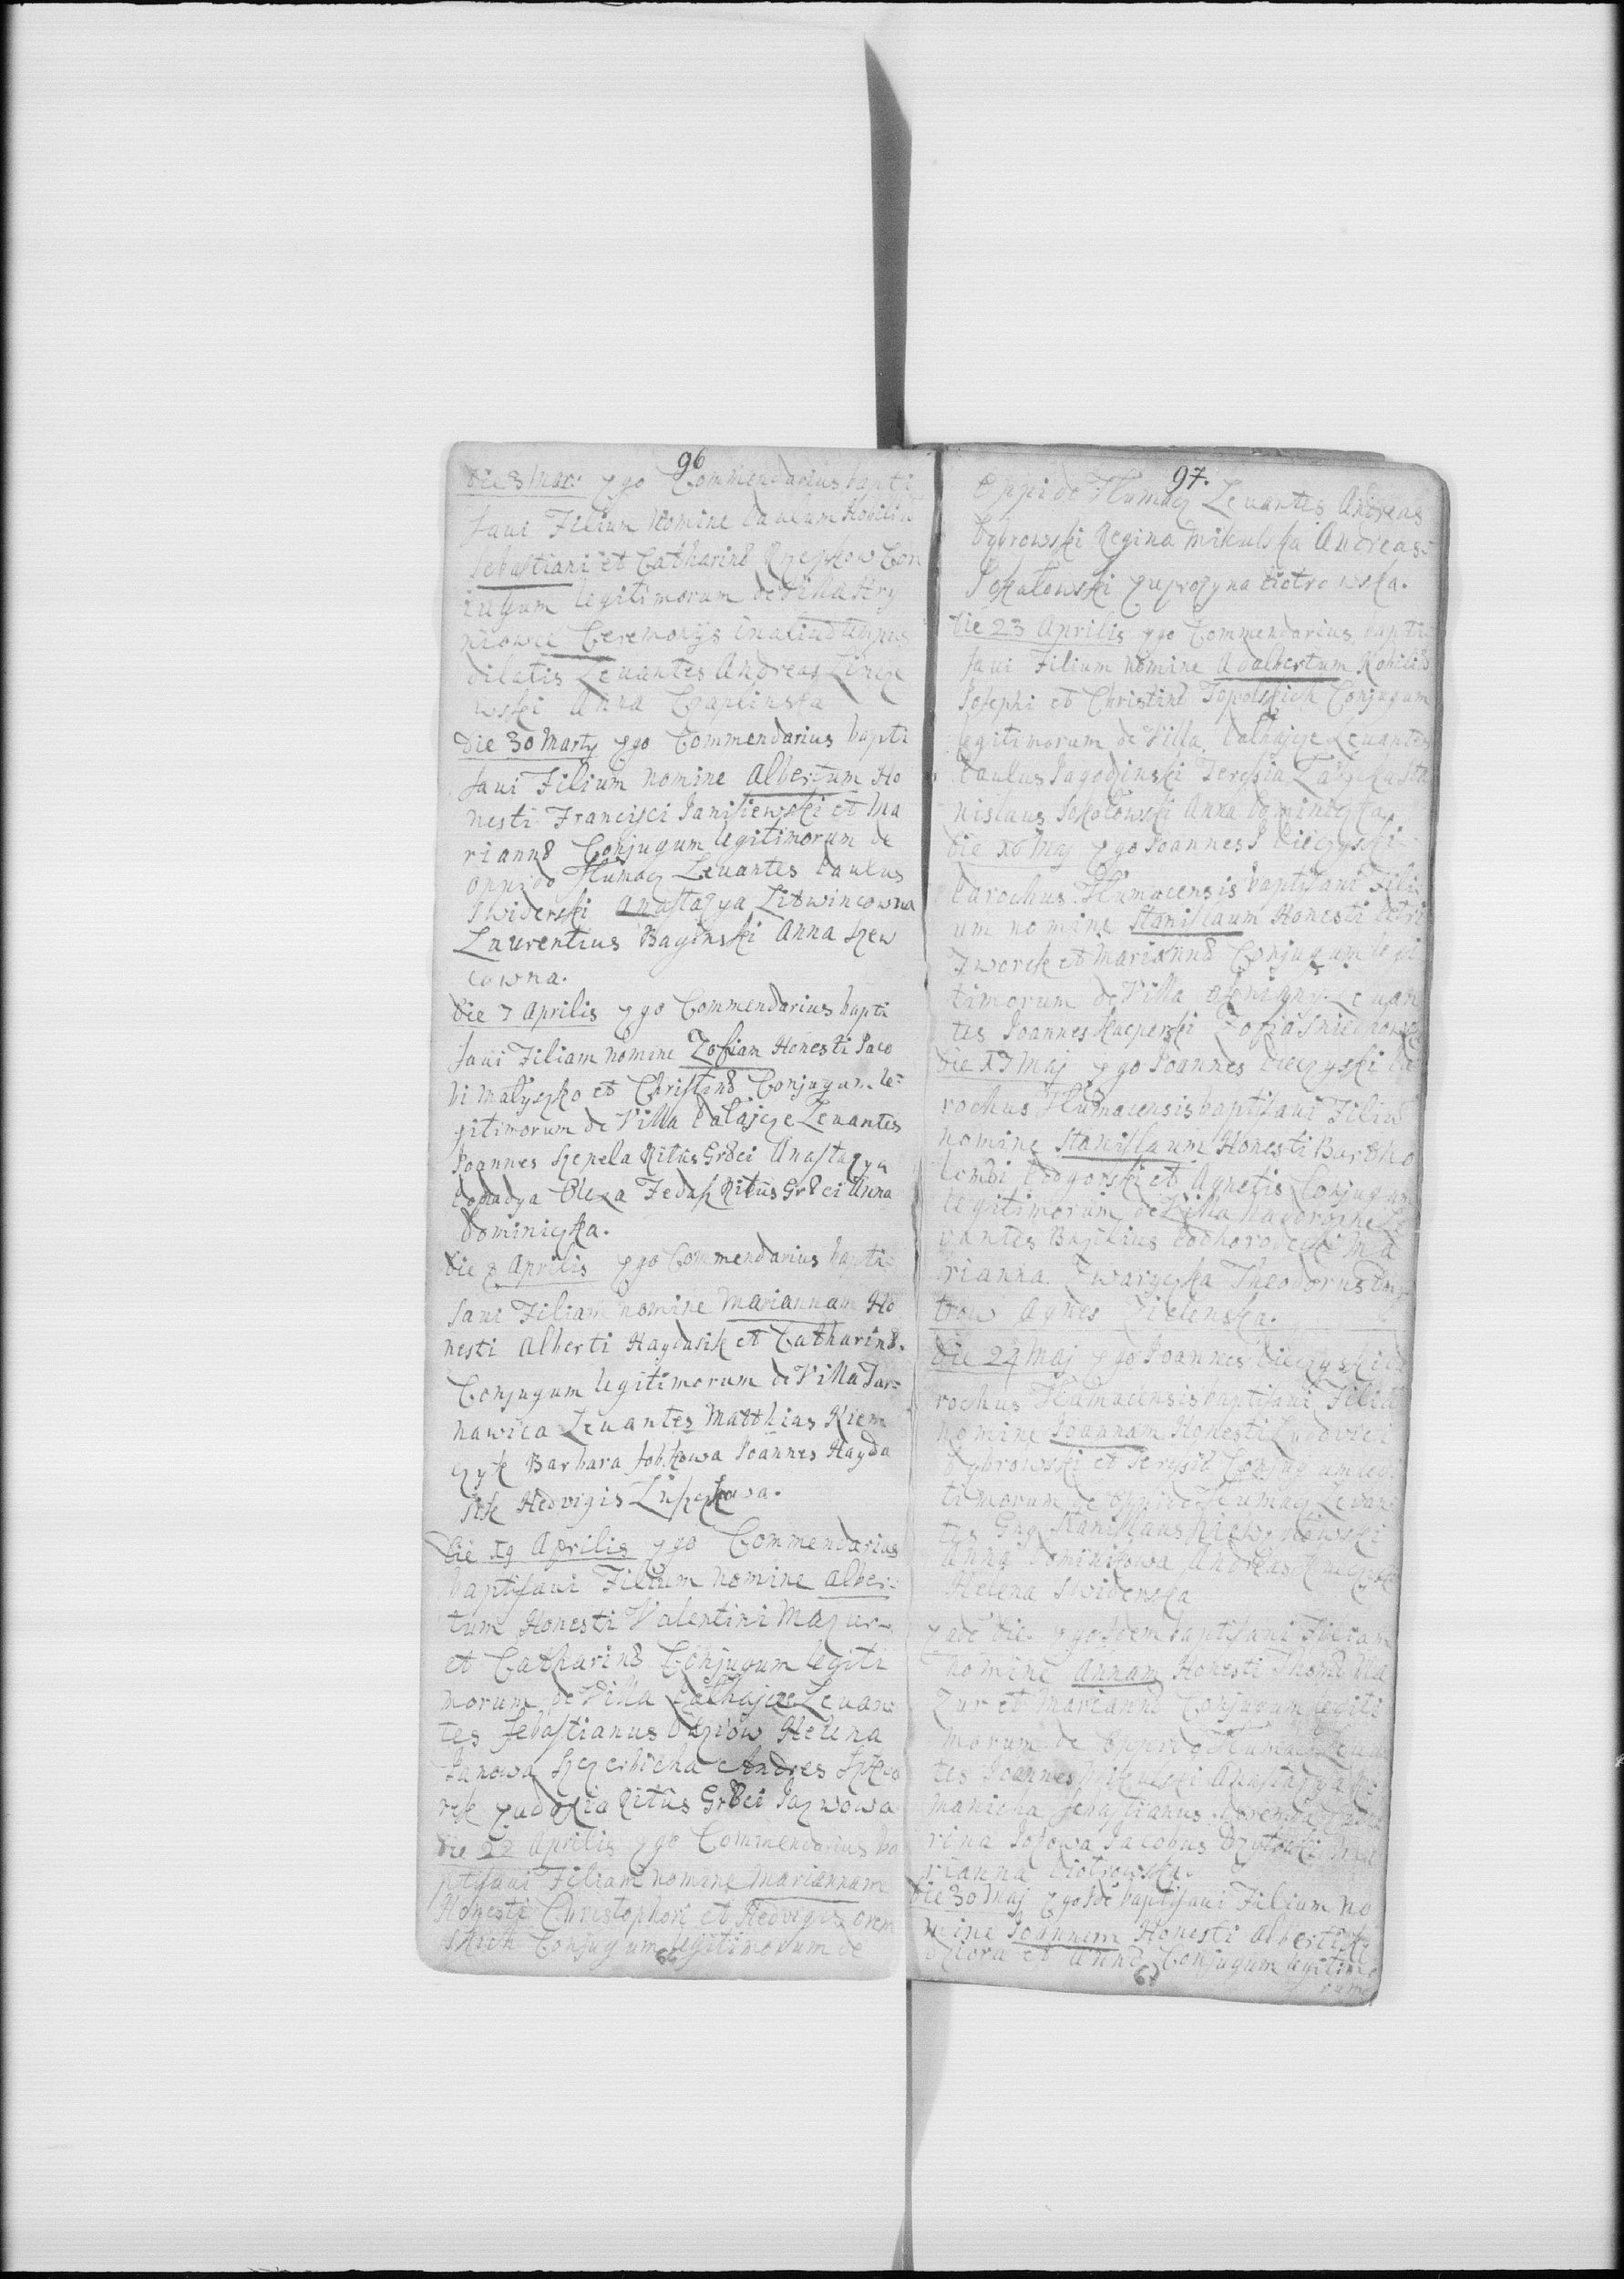 96
Die 8 Mar: Ego Commendarius bapti
savi Filium Nomine Paulum Nobiliu
Sebastiani et Catharinæ Rzepkow Con
iugum legitimorum de Villa Hry
niowce Ceremonijs in aliud tempus
dilatis Levantes Andreas
wski Anna Czaplinska
Die 30 Marty Ego Commendarius bapti
savi Filium nomine Albertum Ho
nesti Francisci Janisiewski et Ma
riannæ Conjugum legitimorum de
oppido Tłumacz Levantes Paulus
Swiderski Anastazya Litwincowna
Laurentius Baginski Anna Szew
cowna.
Die 7 Aprilis Ego Commendarius bapti
savi Filiam nomine Zofiam Honesti Jaco
bi Małyszko et Christinæ Conjugum le=
gitimorum de Villa Palajcze Levantes
Joannes Szepela Ritûs Græci Anastazya
Popadya Olexa Fedas Ritûs Græci Anna
Dominiczka.
Die 8 Aprilis Ego Commendarius bapti=
savi Filiam nomine Mariannam Ho
nesti Alberti Haydusik et Catharinæ.
Conjugum legitimorum de Villa Tar=
nawica Levantes Matthias Krem
czyk Barbara Sobkowa Joannes Hayda
sik Hedvigis
Die 19 Aprilis Ego Commendarius
baptisavi Filium nomine Alber=
tum Honesti Valentini Mazur
et Catharinæ Conjugum legiti
morum de Villa Palhajcze Levan
tes Sebastianus Helena
Janowa Szczerbicha Andres
rek Eudoxia Ritûs Græci Jazwowa
Die 22 Aprilis Ego Commendarius ba
ptisavi Filiam nomine Mariannam
Honesti Christophori et Hedvigis
Conjugum legitimorum de
97.
Oppido Tłumacz Levantes Andreas
Dybrowski Regina Mikulska Andreas
Sokałowski Euprozyna Piotrowska.
Die 23 Aprilis Ego Commendarius bapti=
savi Filium nomine Adalbertum Nobiliu
Josephi et Christinæ Topolskich Conjugum
legitimorum de Villa Palhajcze Levantes
Paulus Jagodzinski Teresia Sta
nislaus Sokołowski Anna Dominiczka.
Die 16 Maj Ego Joannes Dieczyski
Parochus Tłumacensis baptisavi Fili
um nomine Stanislaum Honesti Petri
Dworek et Mariannæ Conjugum legi
timorum de Villa Levan
tes Joannes Kacperski Zofia
Die 17 Maj Ego Joannes Dieczyski Pa
rochus Tłumacensis baptisavi Filiu
nomine Stanislaum Honesti Bartho
lomæi Podgorski et Agnetis Conjugum
legitimorum de Villa Nadorozne Le
vantes Bazilius Podhorodecki Ma
rianna Zwaryczka Theodorus Dmy
trow Agnes Zielenska.
Die 24 Maj Ego Joannes Dieczyski Pa
rochus Tłumacensis baptisavi Filia
nomine Joannam Honesti Ludvici
Dybrowski et Teresiæ Conjugum legi
timorum de oppido Tłumacz Levan
tes Gnś Stanislaus
Anna Dominikowa Andreas
Helena Swiderska
Eade die Ego Idem baptisavi Filiam
nomine Annam Honesti Thomæ Ma
zur et Mariannæ Conjugum legiti
morum de Oppido Tłumacz Levan
tes Joannes Mikulski Anastazya Ro
manicha Sebastianus
rina Jacobus Ma
rianna Piotrowska.
Die 30 Maj Ego Idē baptisavi Filium no
mine Joannem Honesti Alberti
et Annæ Conjugum legitimo
rum